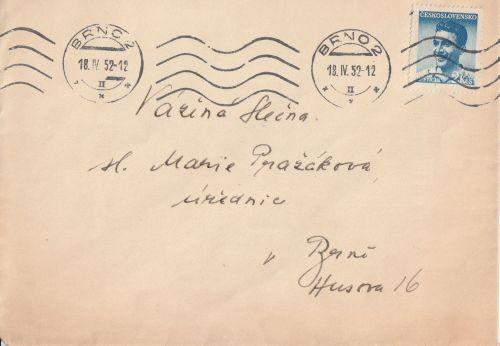 BRNO 2
18.IV.52-12
II
BRNO 2
18.IV.52-12
II
ČESKOSLOVENSKO
Vážená slečna
sl. Marie Pražáková
úřednice
v Brně
Husova 16